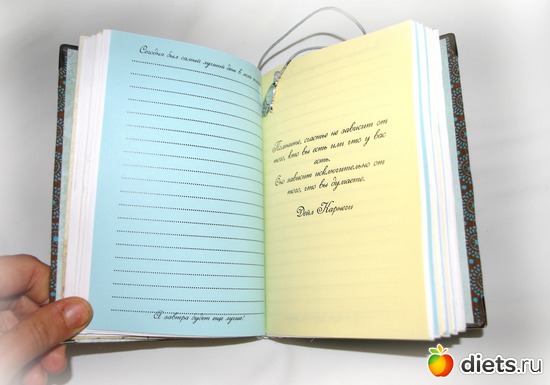 Сегодня был самый лучший день в моей
А завтра будет еще лучше!
Помните, счастье не зависит от
того, кто вы есть или что у вас
есть.
Оно зависит исключительно от
того, что вы думаете.
Дейл Карнеги
diets.ru